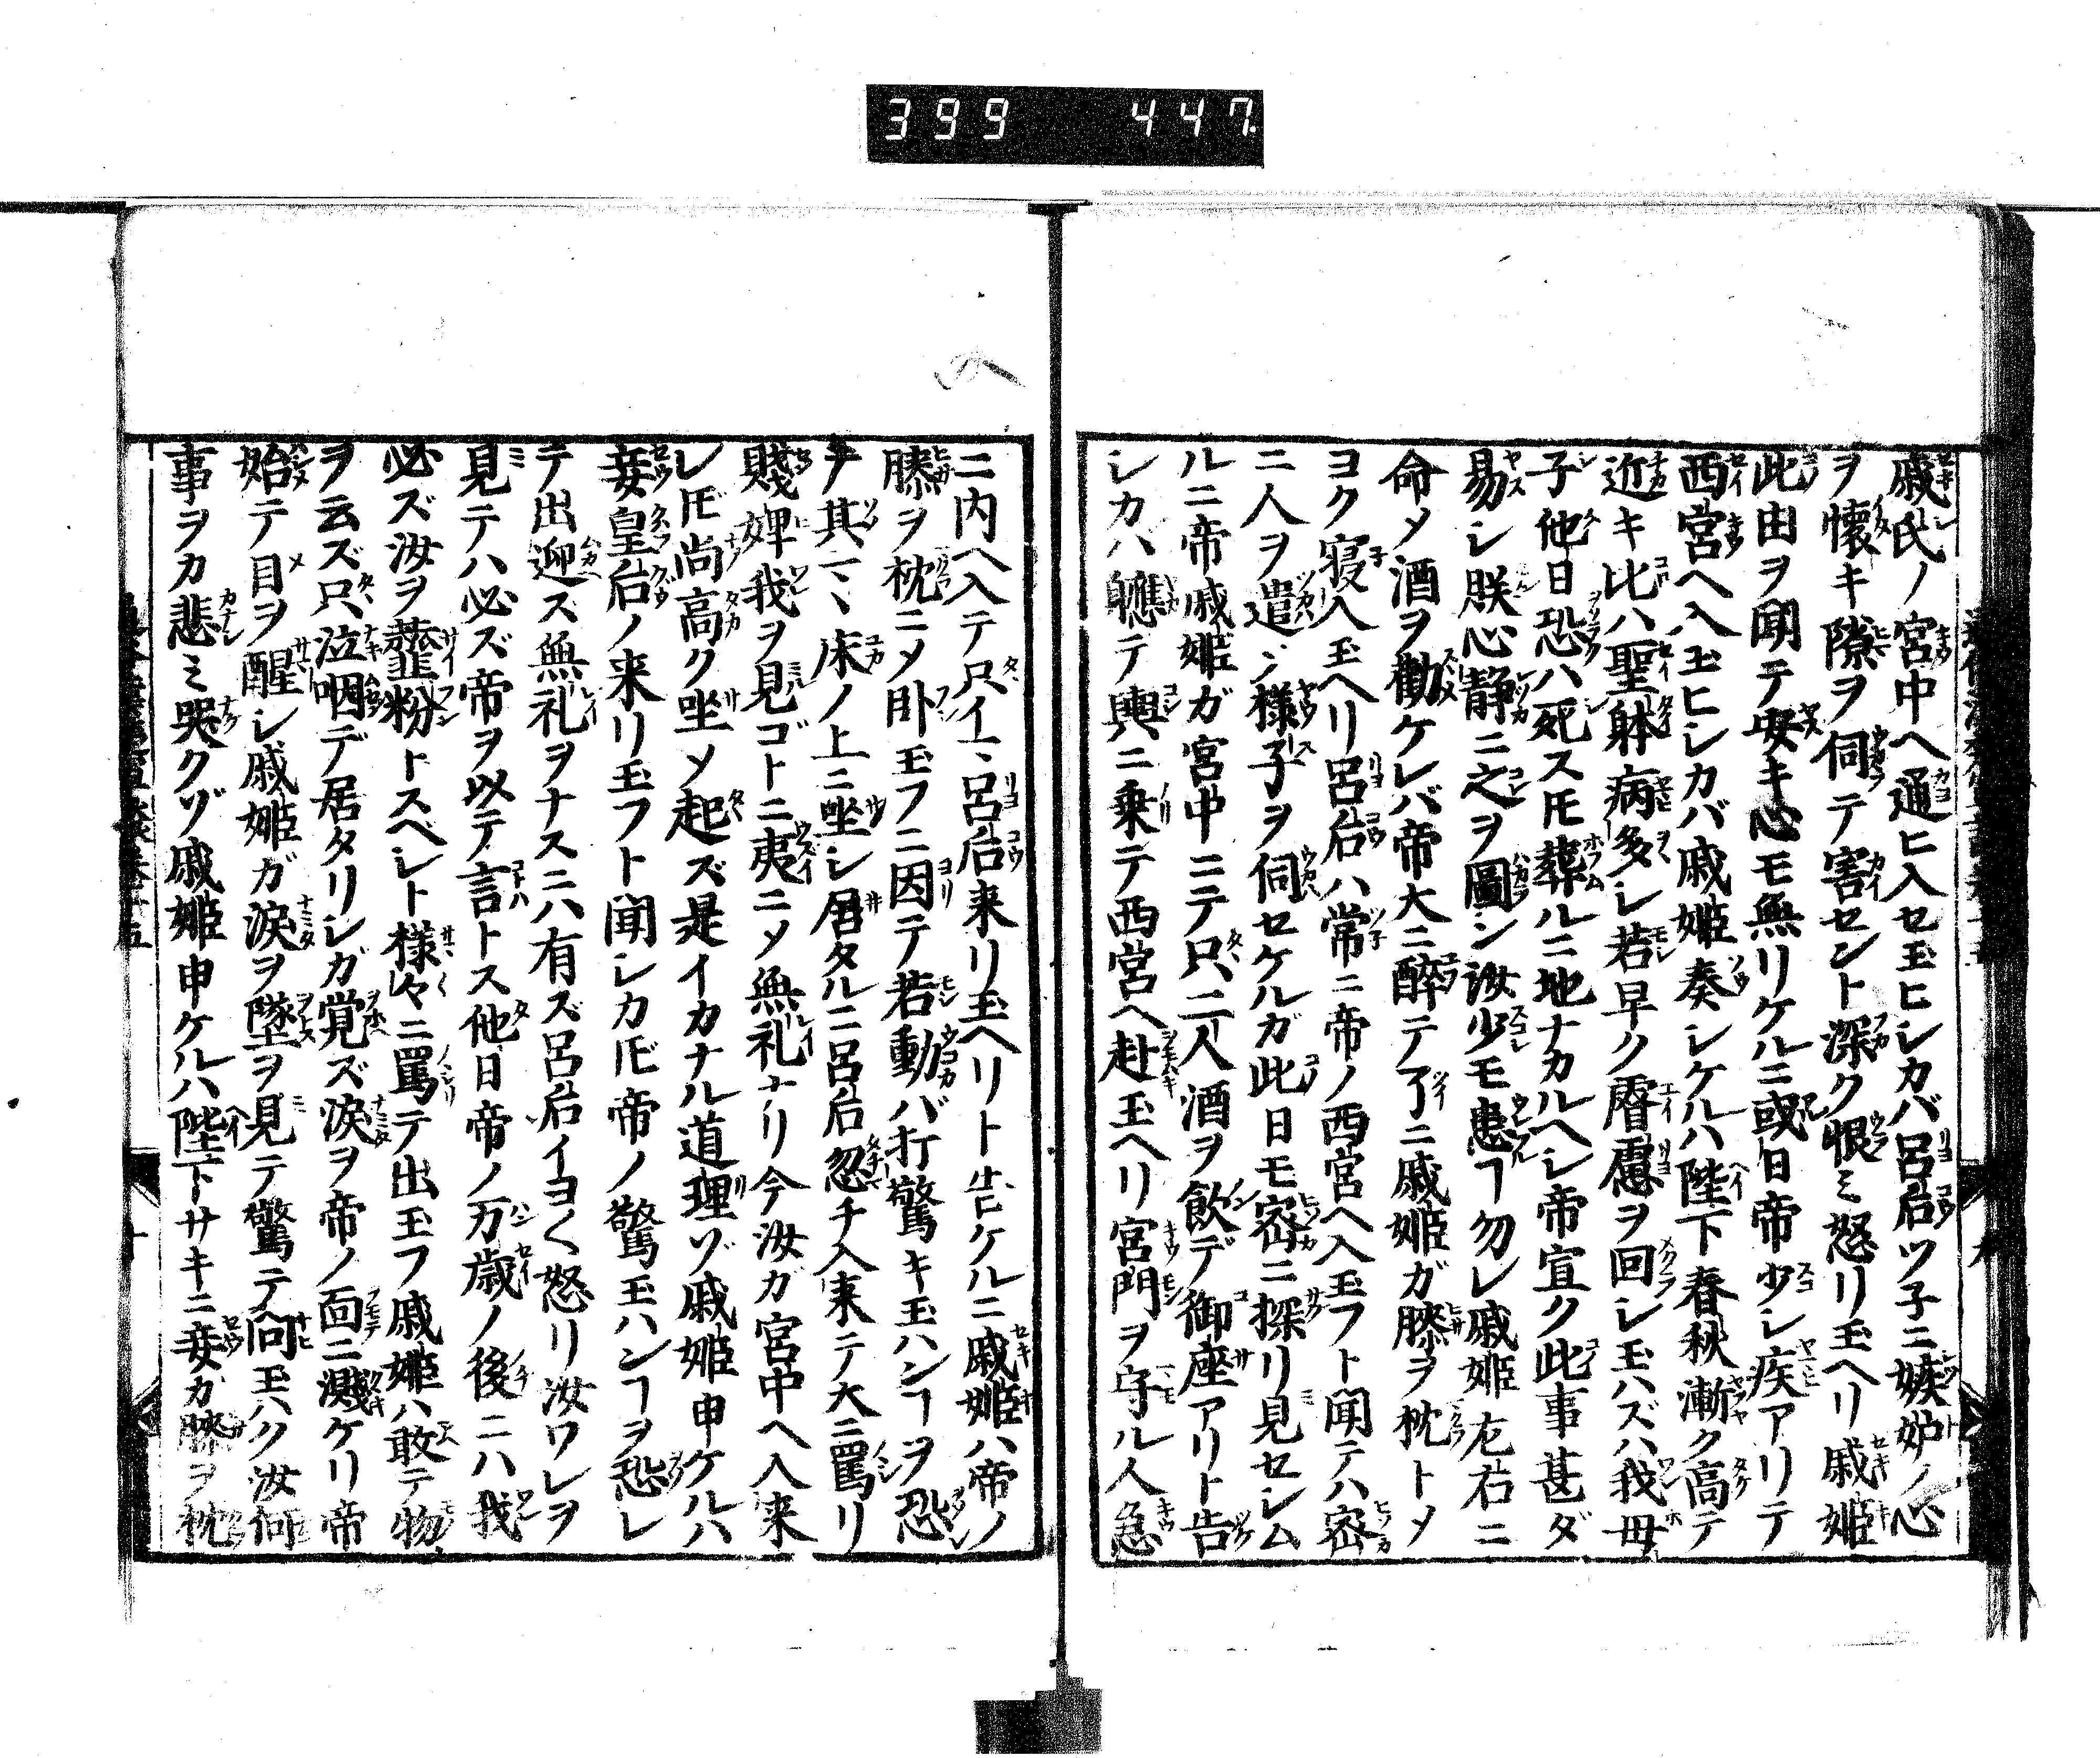 399 447
戚氏ノ宮中ヘ通ヒ入セ玉ヒシカバ呂后ツ子ニ嫉妒ノ心
ヲ懐キ隙ヲ伺テ害セント深ク恨ミ怒リ玉ヘリ戚姫
此由ヲ聞テ安キ心モ無リケルニ或日帝少シ疾アリテ
西宮ヘ入玉ヒシカバ戚姫奏シケルハ陛下春秋漸ク高テ
近キ比ハ聖躰病多シ若早ク睿慮ヲ回シ玉ハズハ我母
子他日恐ハ死スモ葬ルニ地ナカルヘシ帝宣ク此事甚ダ
易シ朕心静ニ之ヲ圖ン汝少モ患フヿ勿レ戚姫左右ニ
命メ酒ヲ勸ケレバ帝大ニ醉テ了ニ戚姫ガ膝ヲ枕トメ
ヨク寝入玉ヘリ呂后ハ常ニ帝ノ西宮ヘ入玉フト聞テハ密
ニ人ヲ遣ジ様子ヲ伺セケルガ此日モ密ニ探リ見セシム
ルニ帝戚姫ガ宮中ニテ只二人酒ヲ飲デ御座アリト告
シカハ軈テ輿ニ乗テ西宮ヘ赴玉ヘリ宮門ヲ守ル人急
ニ内ヘ入テ只今呂后来リ玉ヘリト告ケルニ戚姫ハ帝ノ
膝ヲ枕ニメ卧玉フニ因テ若動バ打驚キ玉ハンヿヲ恐
テ其マヽ床ノ上ニ坐シ居タルニ呂后忽チ入来テ大ニ罵リ
賤婢我ヲ見ゴトニ夷ニメ無礼ナリ今汝ガ宮中ヘ入来
レ𪜈尚高ク坐メ起ズ是イカナル道理ゾ戚姫申ケルハ
妾皇后ノ来リ玉フト聞シカ𪜈帝ノ驚玉ハンヿヲ恐レ
テ出迎ス無礼ヲナスニハ有ズ呂后イヨく怒リ汝ワレヲ
見テハ必ズ帝ヲ以テ言トス他日帝ノ万歳ノ後ニハ我
必ズ汝ヲ虀粉トスヘシト様々ニ罵テ出玉フ戚姫ハ敢テ物
ヲ云ズ只泣咽デ居タリシガ覚ズ涙ヲ帝ノ面ニ濺ケリ帝
始テ目ヲ醒シ戚姫ガ涙ヲ墜ヲ見テ驚テ問玉ハク汝何
事ヲカ悲ミ哭クゾ戚姫申ケルハ陛下サキニ妾ガ膝ヲ枕